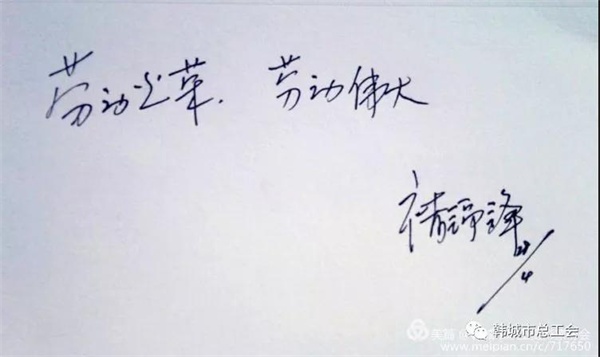 劳动光荣、劳动伟大
28/4
韩城市总工会
www.meipian.cn/c/717650